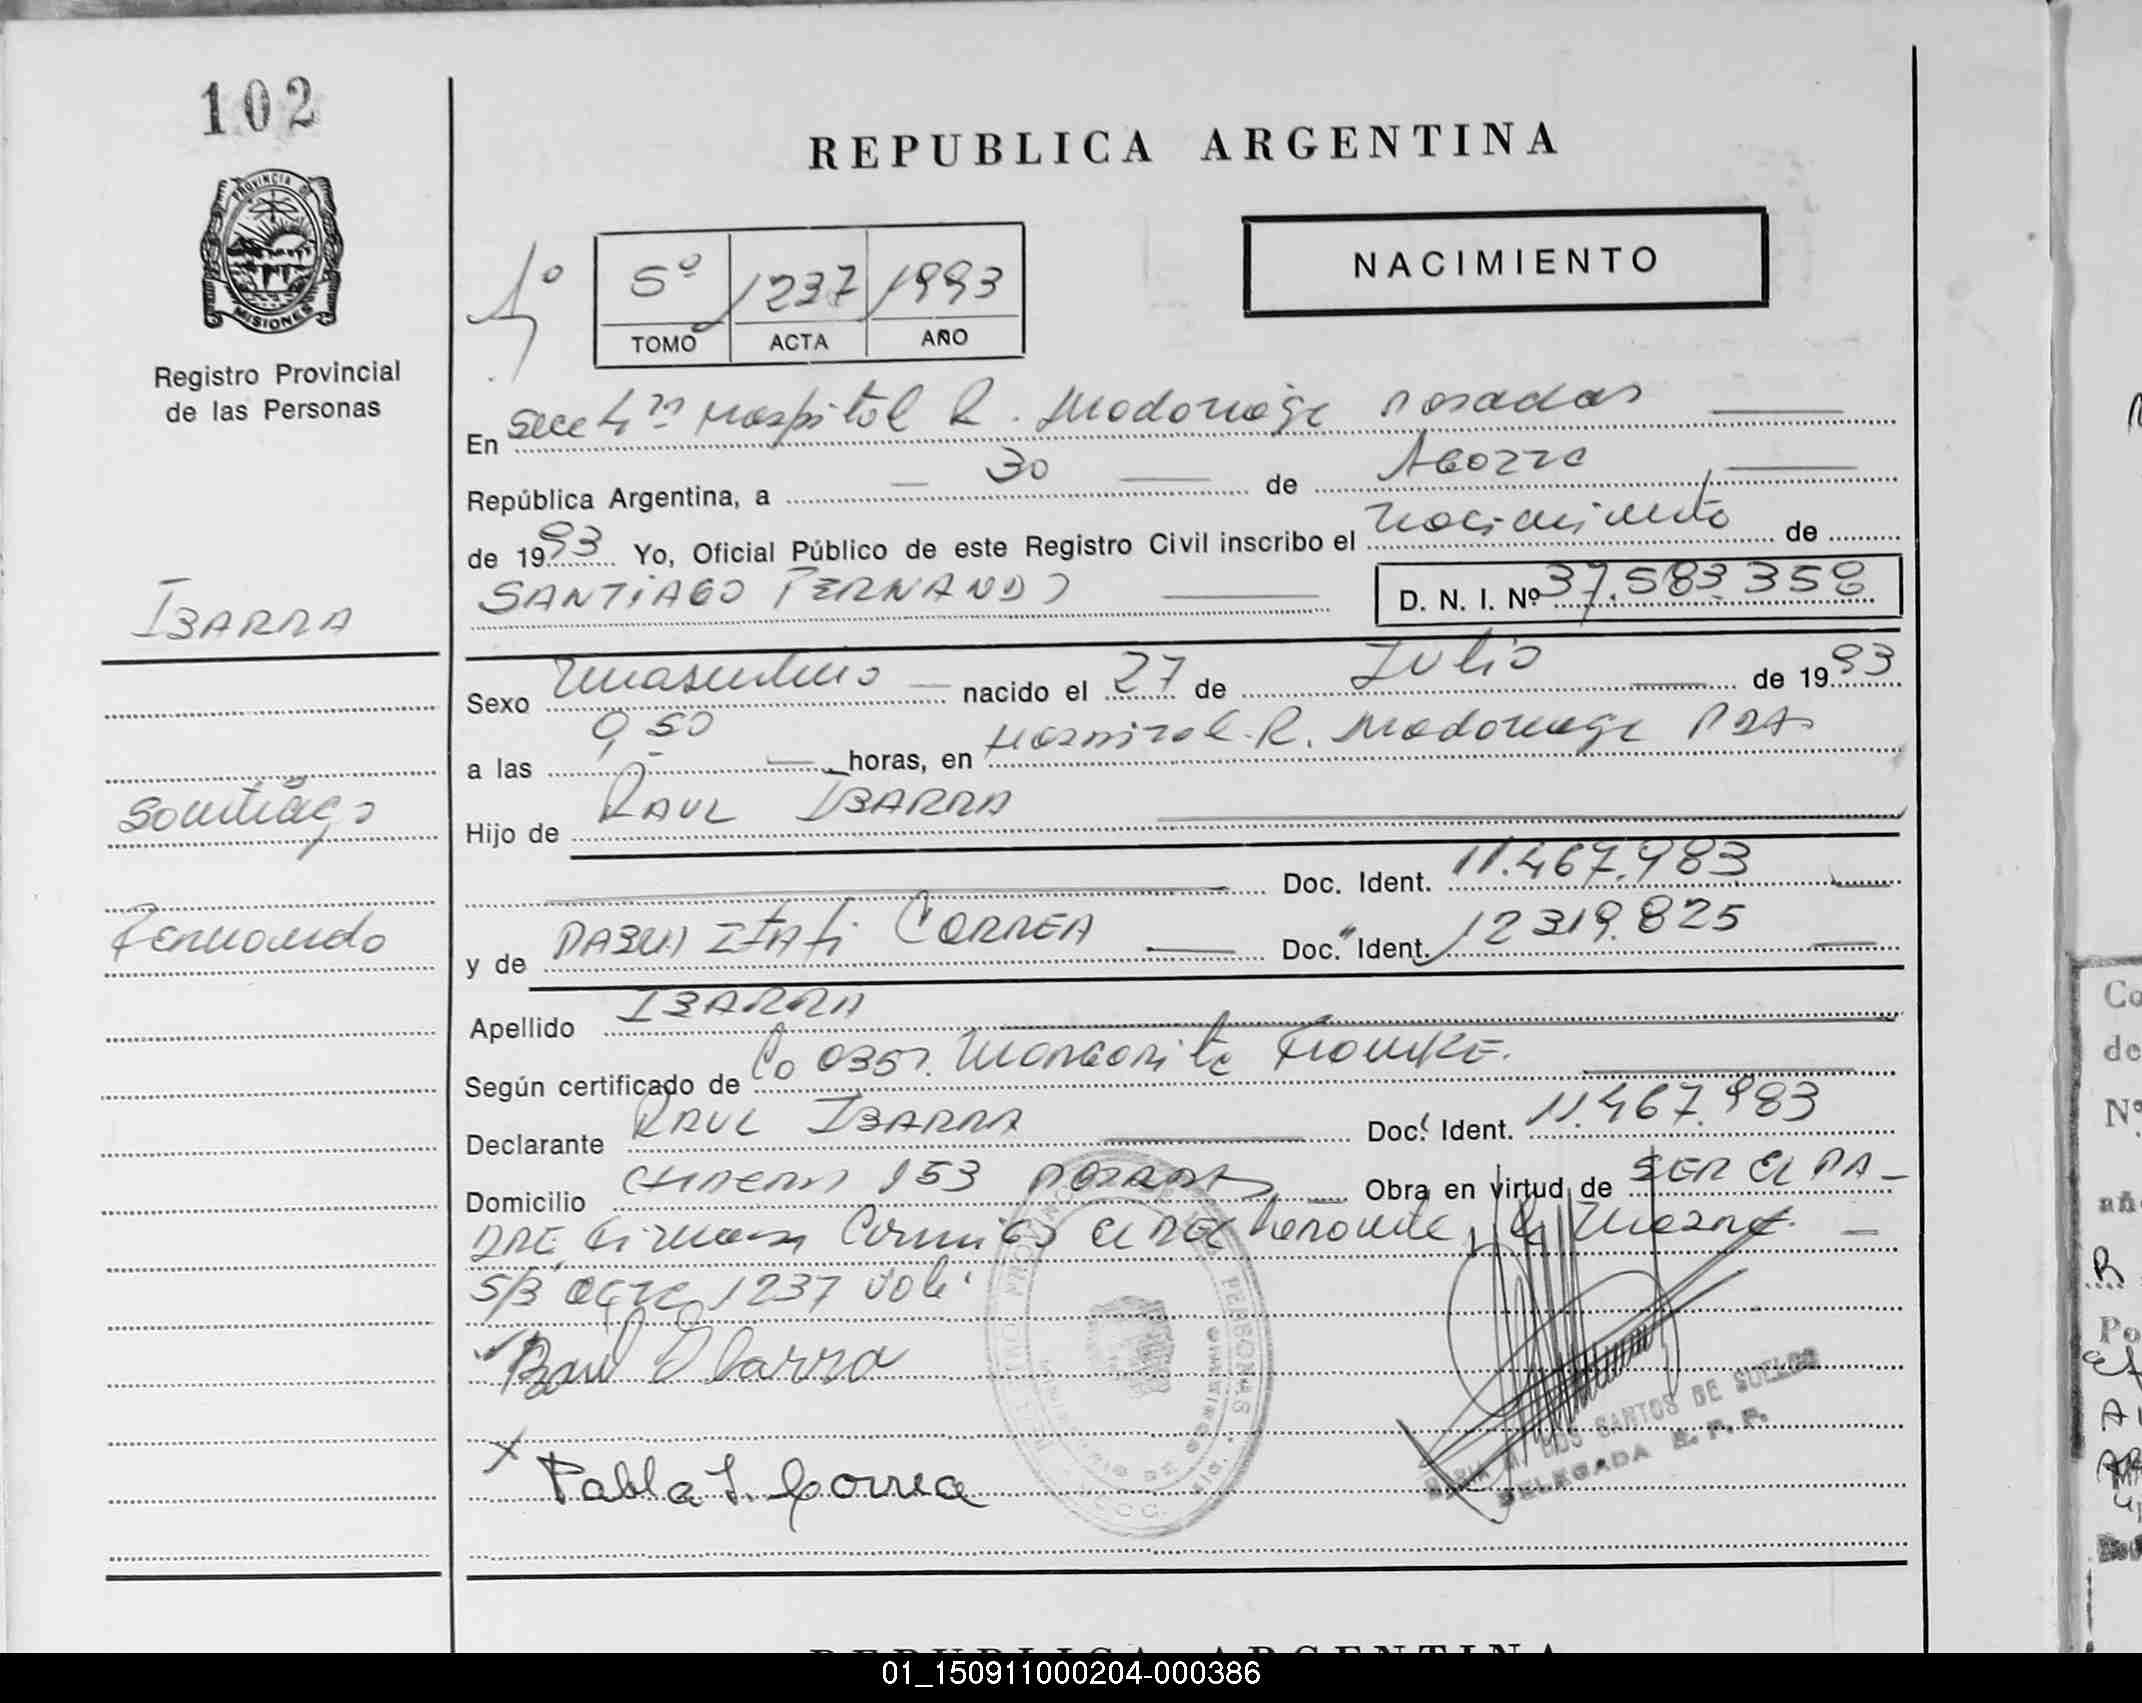 102
REPUBLICA ARGENTINA
PROVINCIA DE
MISIONES
Registro Provincial
de las Personas
1º
5º 1237 1993
TOMO ACTA AÑO
NACIMIENTO
En Secc 4ta Hospital R. Madariaga Posadas
República Argentina, a 30 de Agosto
de 1993 Yo, Oficial Público de este Registro Civil inscribo el Nacimiento de
IBARRA
SANTIAGO FERNANDO D. N. I. Nº 37.583.358
Sexo Masculino nacido el 27 de Julio de 1993
a las 9,50 horas, en Hospital R. Madariaga PDAS
Santiago
Hijo de RAUL IBARRA
Doc. Ident. 11.467.983
Fernando
y de PABLA ITATI CORREA Doc. Ident. 12319.825
Apellido IBARRA
Según certificado de Margarita
Declarante RAUL IBARRA Doc. Ident. 11.467.983
Domicilio 153 POSADAS Obra en virtud de SER EL PA-
DRE, Firman Conmigo el DEClarante y la Madre.
S/B acta 1237 Vale
Raul Ibarra
X Pabla I. Correa
MARIA M. DOS SANTOS DE SUELDO
DELEGADA R. P. P.
REPUBLICA ARGENTINA
01_150911000204-000386